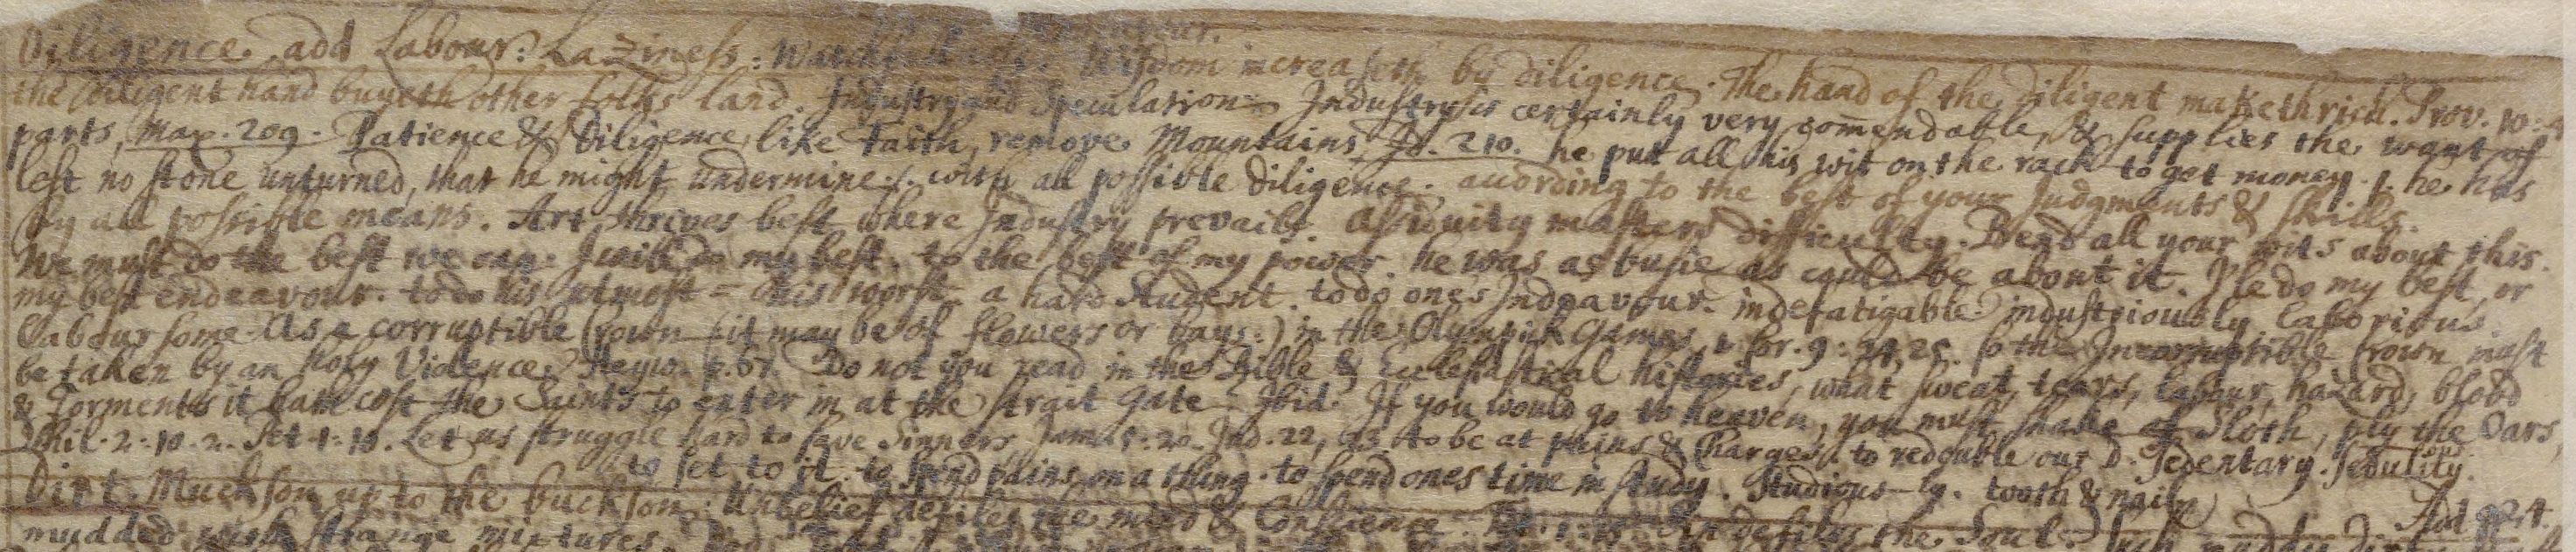 Endeavour.
Diligence. add Labour: Laziness: Watchfulness. Wisdom increaseth by diligence. The hand of the diligent maketh rich. Prov. 10:4
the diligent hand buyeth other folks land. Industry and Speculation Industry is certainly very comendable, & supplies the want of
parts, Max. 209. Patience & Diligence, like Faith, remove Mountains Id. 210. he put all his wit on the rack to get money. he has
left no stone unturned, that he might undermine. with all possible diligence. according to the best of your Judgments & skills.
by all possible means. Art thrives best where Industry prevails. assiduity masters difficulty. Bend all your wits about this.
We must do the best we can. I will do my best. to the best of my power. he was as busie as could be about it. Ile do my best, or
my best endeavour. to do his utmost = his worst. a hard Student. to do ones Indeavour. indefatigable. industriously. laborious.
laboursome. As a corruptible Crown (it may be of flowers or bays:) in the Olympick Games, 1. Cor. 9: 24, 25. so the Incorruptible Crown must
be taken by an Holy Violence. p. 67. Do not you read in the Bible & Ecclesiastical histories, what sweat, tears, labour, hazard, blood
& Torments it hath cost the Saints to enter in at the strait Gate. Ibid. If you would go to heaven, you must shake of Sloth, ply the Oars,
Phil. 2: 10. 2. Pet. 1: 10. Let us struggle hard to save Sinners, Jam. 5: 20. Jud. 22, 23. to be at pains & Charges. to redouble our D. Sedentary. Sedulity.
to set to it. to spend pains on a thing. to spend ones time in study. Studious-ly. tooth & naile
Dirt. Muckson up to the buckson. Unbelief defiles the mind & Conscience. Tit. 1: 15. Sin defiles the Soul.
mudded with strange mixtures.